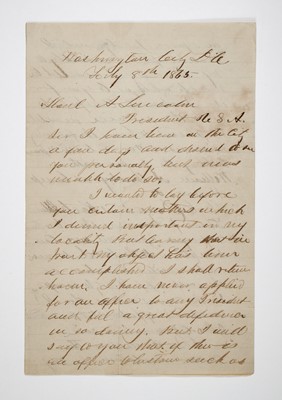 Washington City D.C.
Feby 8th 1865.
A Lincoln
President U.S.A.
Sir I have been in the City
a few days and desired to see
you personally but was
unable to do so.
I wanted to lay before
you certain matters which
I deemed important in my
locality but
my object has been
accomplished I shall return
home. I have never applied
for an office to any President
and feel a great
in so doing. But I will
say to you that if there is
an office such as